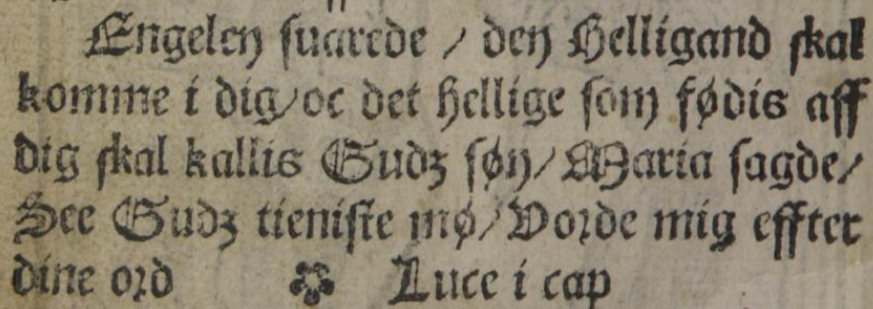 Engelen suarede / den Helligand skal
komme i dig/oc det hellige som fødis aff
dig skal kallis Gudz søn/ Maria sagde/
See Gudz tieniste mø/ Vorde mig effter
dine ord ✿ Luce i cap